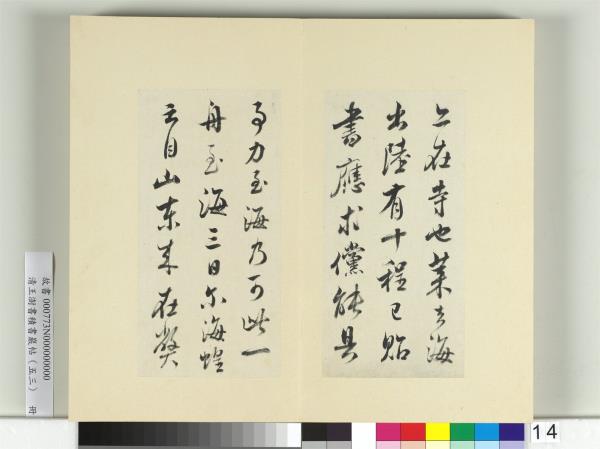 上在寺也萊去海
出陸有十程已貼
書應求儻能具
事力至海乃可此一
舟至海三日尔海蝗
云自山東来在弊
故書 000773N000000000
清王澍書積書巖帖（五三） 冊
14